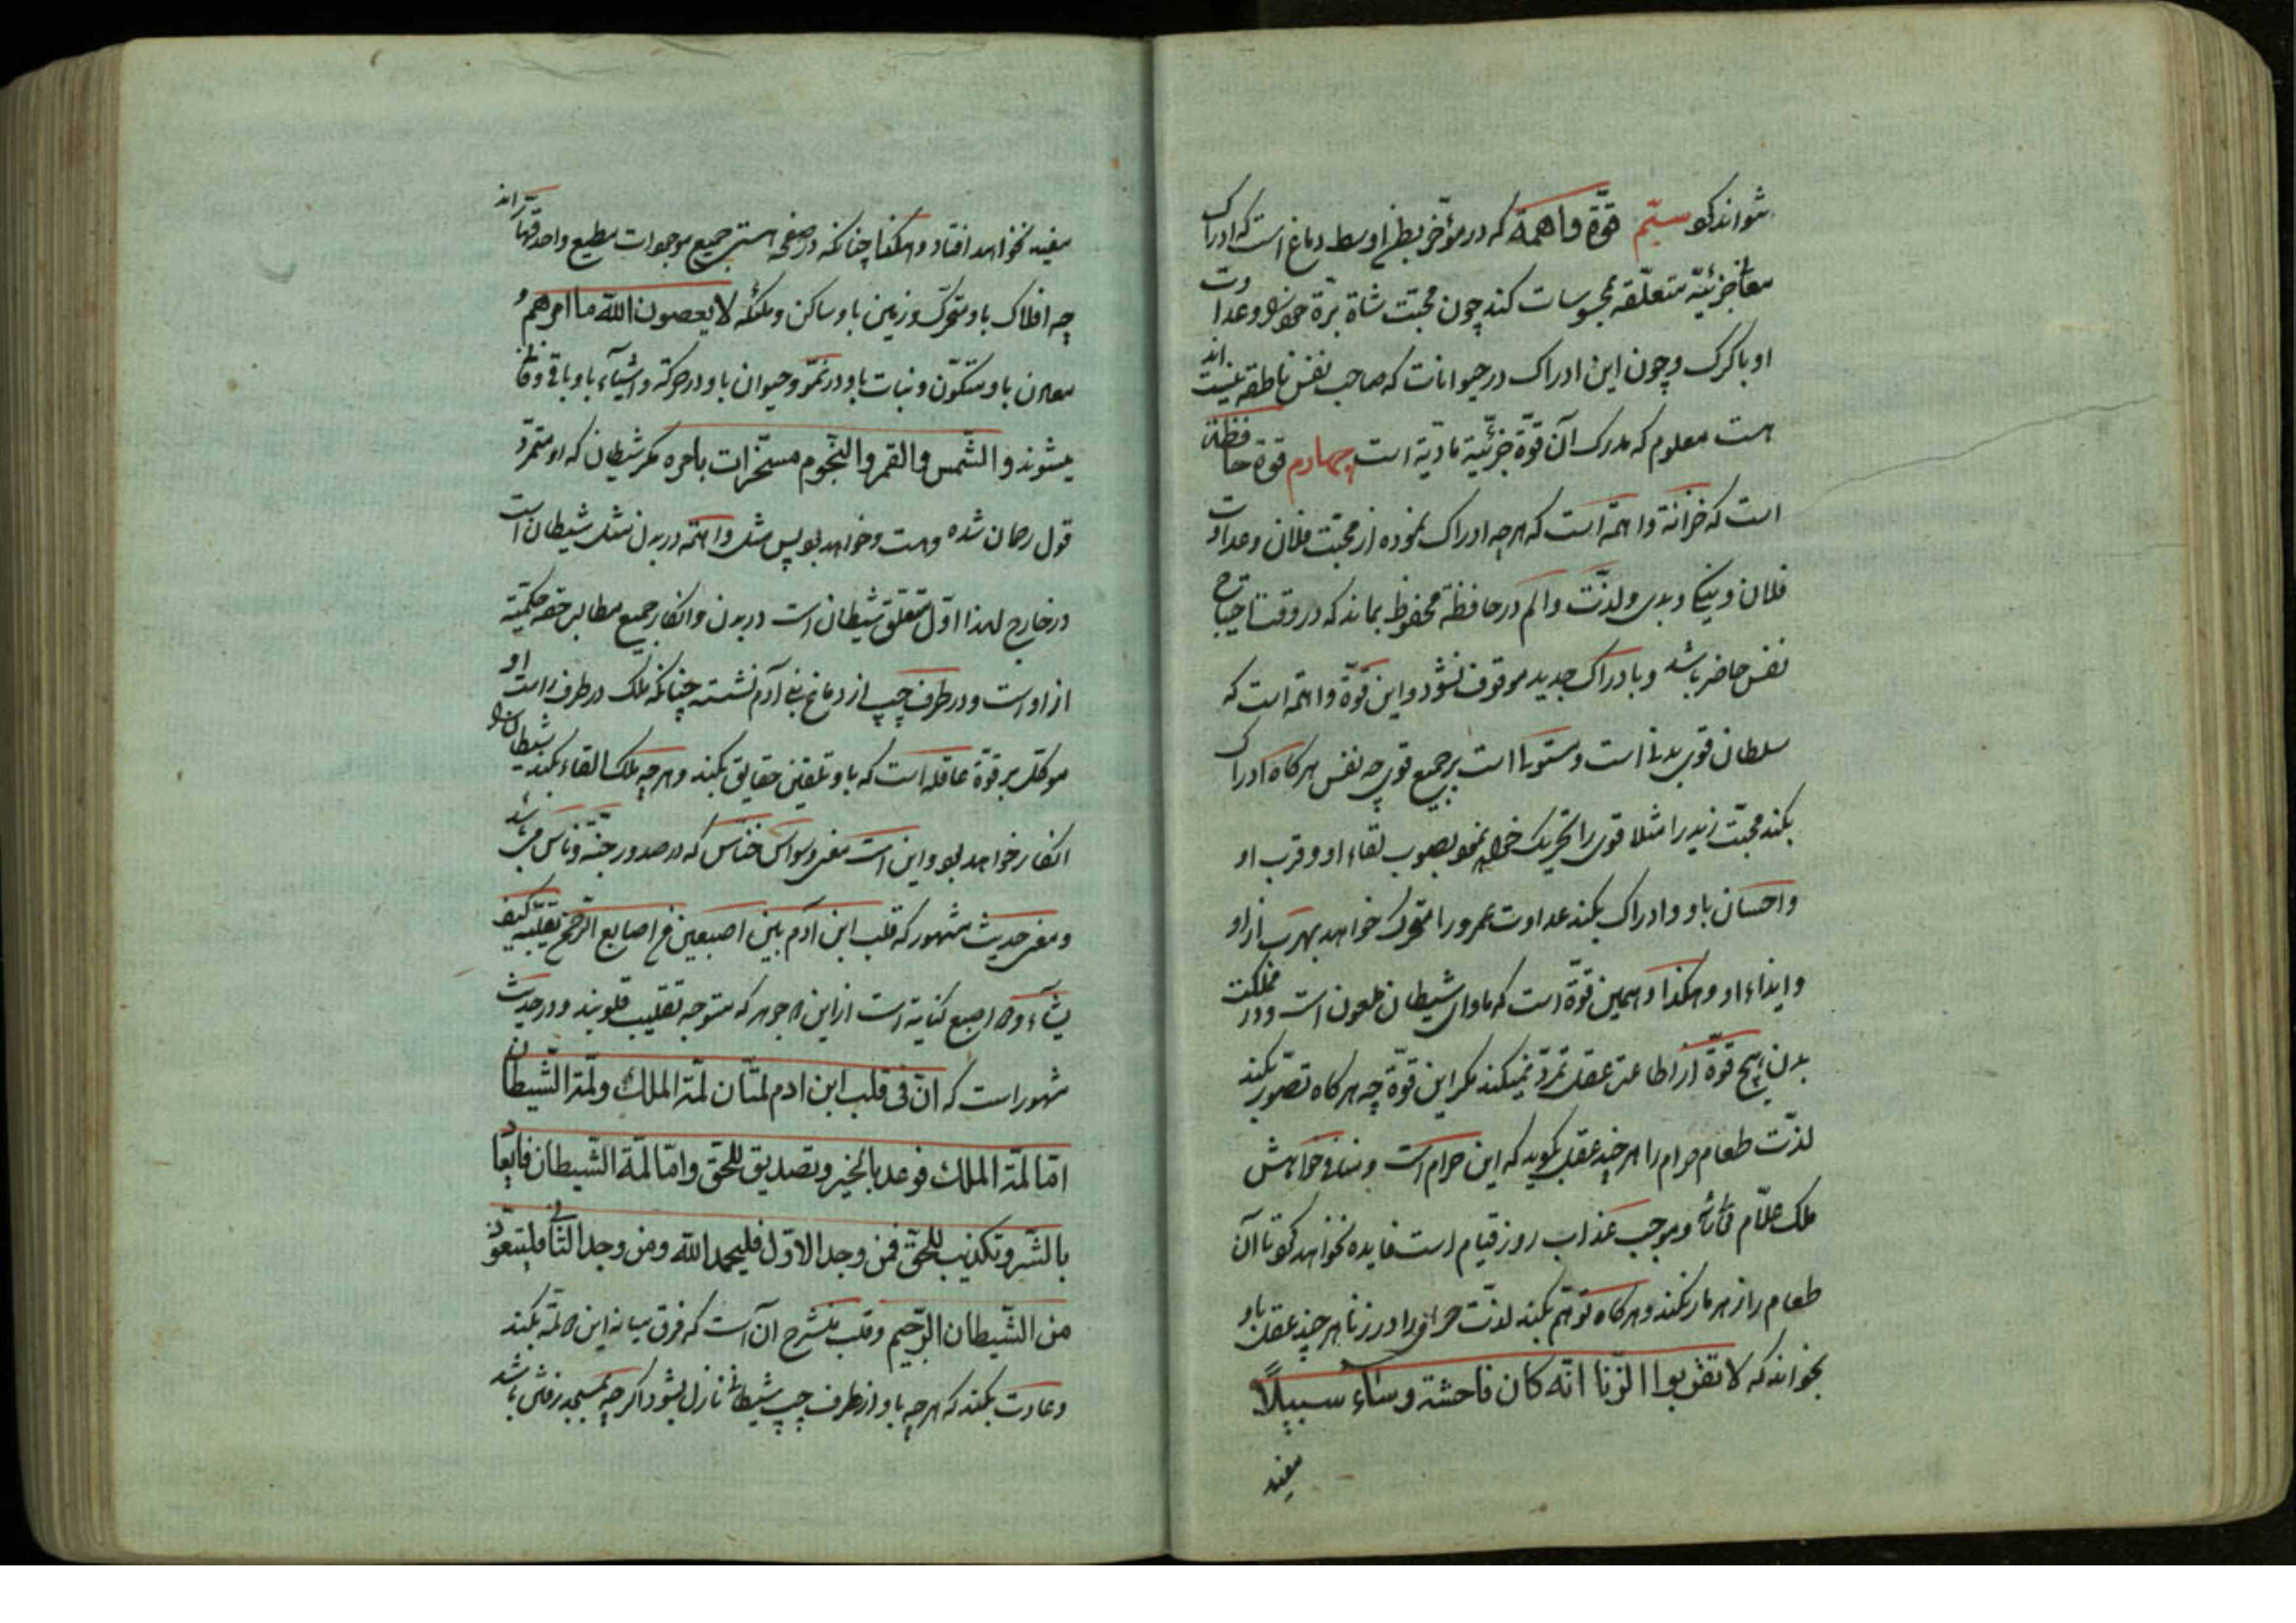 شواند کو سیّم قوّة واهمة که در مؤخّر بطن اوسط دماغ است که ادراک
معانی جزئیّه متعلّقه بمحسوسات کند چون محبّت شاة برّة خود را و عداوت
او با کرک و چون این ادراک در حیوانات که صاحب نفس ناطقه نیستند
هست معلوم که مدرک آن قوّة جزئیّة مادّیة است چهارم قوة حافظة
است که خزانة واهمّه است که هرچه ادراک نموده از محبّت فلان و عداوت
فلان و نیکی و بدی و لذّت و الم در حافظة محفوظ بماند که در وقت احتیاج
نفس حاضر باشد و بادراک جدید موقوف نشود و این قوّة واهمّه است که
سلطان قوی بدنی است و مستولی است بر جمیع قوی چه نفس هرکاه ادراک
بکند محبّت زید را مثلا قوی را تحریک خواهد نمود بصوب لقاء او و قرب او
و احسان باو و ادراک بکند عداوت عمرو را متحرّک خواهد بهرب از او
و ایذاء او و هکذا و همین قوّة است که ماوای شیطان ملعون است و در مملکت
بدن هیچ قوّة از اطاعت عقل تمرّد نمیکند مکر این قوّة چه هرکاه تصوّر بکند
لذّت طعام حرام را هر چند عقل بکوید که این حرام است و منافی خواهش
ملک علّام و موجب عذاب روز قیام است فایده نخواهد کو تا آن
طعام را زهرمار نکند و هرکاه توهّم بکند لذّت را در زنا هر چند عقل باو
بخواند که لا تقربوا الزّنا انّه کان فاحشة و ساء سبیلاً
مفید
مفید نخواهد افتاد و هکذا چنانکه در صفحه هستی جمیع موجودات مطیع واحد قهّار اند
چه افلاک باو متحرّک و زمین باو ساکن و ملئکه لا یعصون الله ما امرهم و
معادن باو متکوّن و نبات باو در نموّ و حیوان باو در حرکة و اشیاء باو باقی و فانی
میشوند و الشّمس و القمر و النّجوم مسخّرات بامره مکر شیطان که او متمرّد
قول رحمان شده و هست و خواهد بو پس مثل واهمّه در بدن مثل شیطان است
در خارج لهذا اوّل متعلّق شیطان است در بدن و انکار جمیع مطالب حقه حکمیّة
از او است و در طرف چپ از دماغ بنی آدم نشسته چنانکه ملک در طرف راست او
موکّل بر قوة عاقله است که باو تلقین حقایق بکند و هرچه ملک القاء بکند شیطان را
انکار خواهد بو و این است معنی وسواس خنّاس که در صدور جنّة و ناس می باشد
و معنی حدیث مشهور که قلب ابن ادم بین اصبعین من اصابع الرّحمن یقلّبه کیف
یشاء و اصبع کنایة است از این جوهر که متوجه تقلیب قلوبند و در حدیث
مشهور است که انّ فی قلب ابن ادم لمّتان لمّة الملك و لمّة الشّیطان
امّا لمّة الملك فوعد بالخیر و تصدیق للحقّ و امّا لمّة الشّیطان فایعاد
بالشّر و تکذیب للحقّ فمن وجد الاوّل فلیحمد الله و من وجد الثّانی فلیتعوّذ
من الشّیطان الرّجیم و قلب منشرح آن است که فرق میانه این لمّه بکند
و عادت بکند که هرچه باو از طرف چپ شیطانی نازل بشود اکر چه بمسجد رفتن باشد